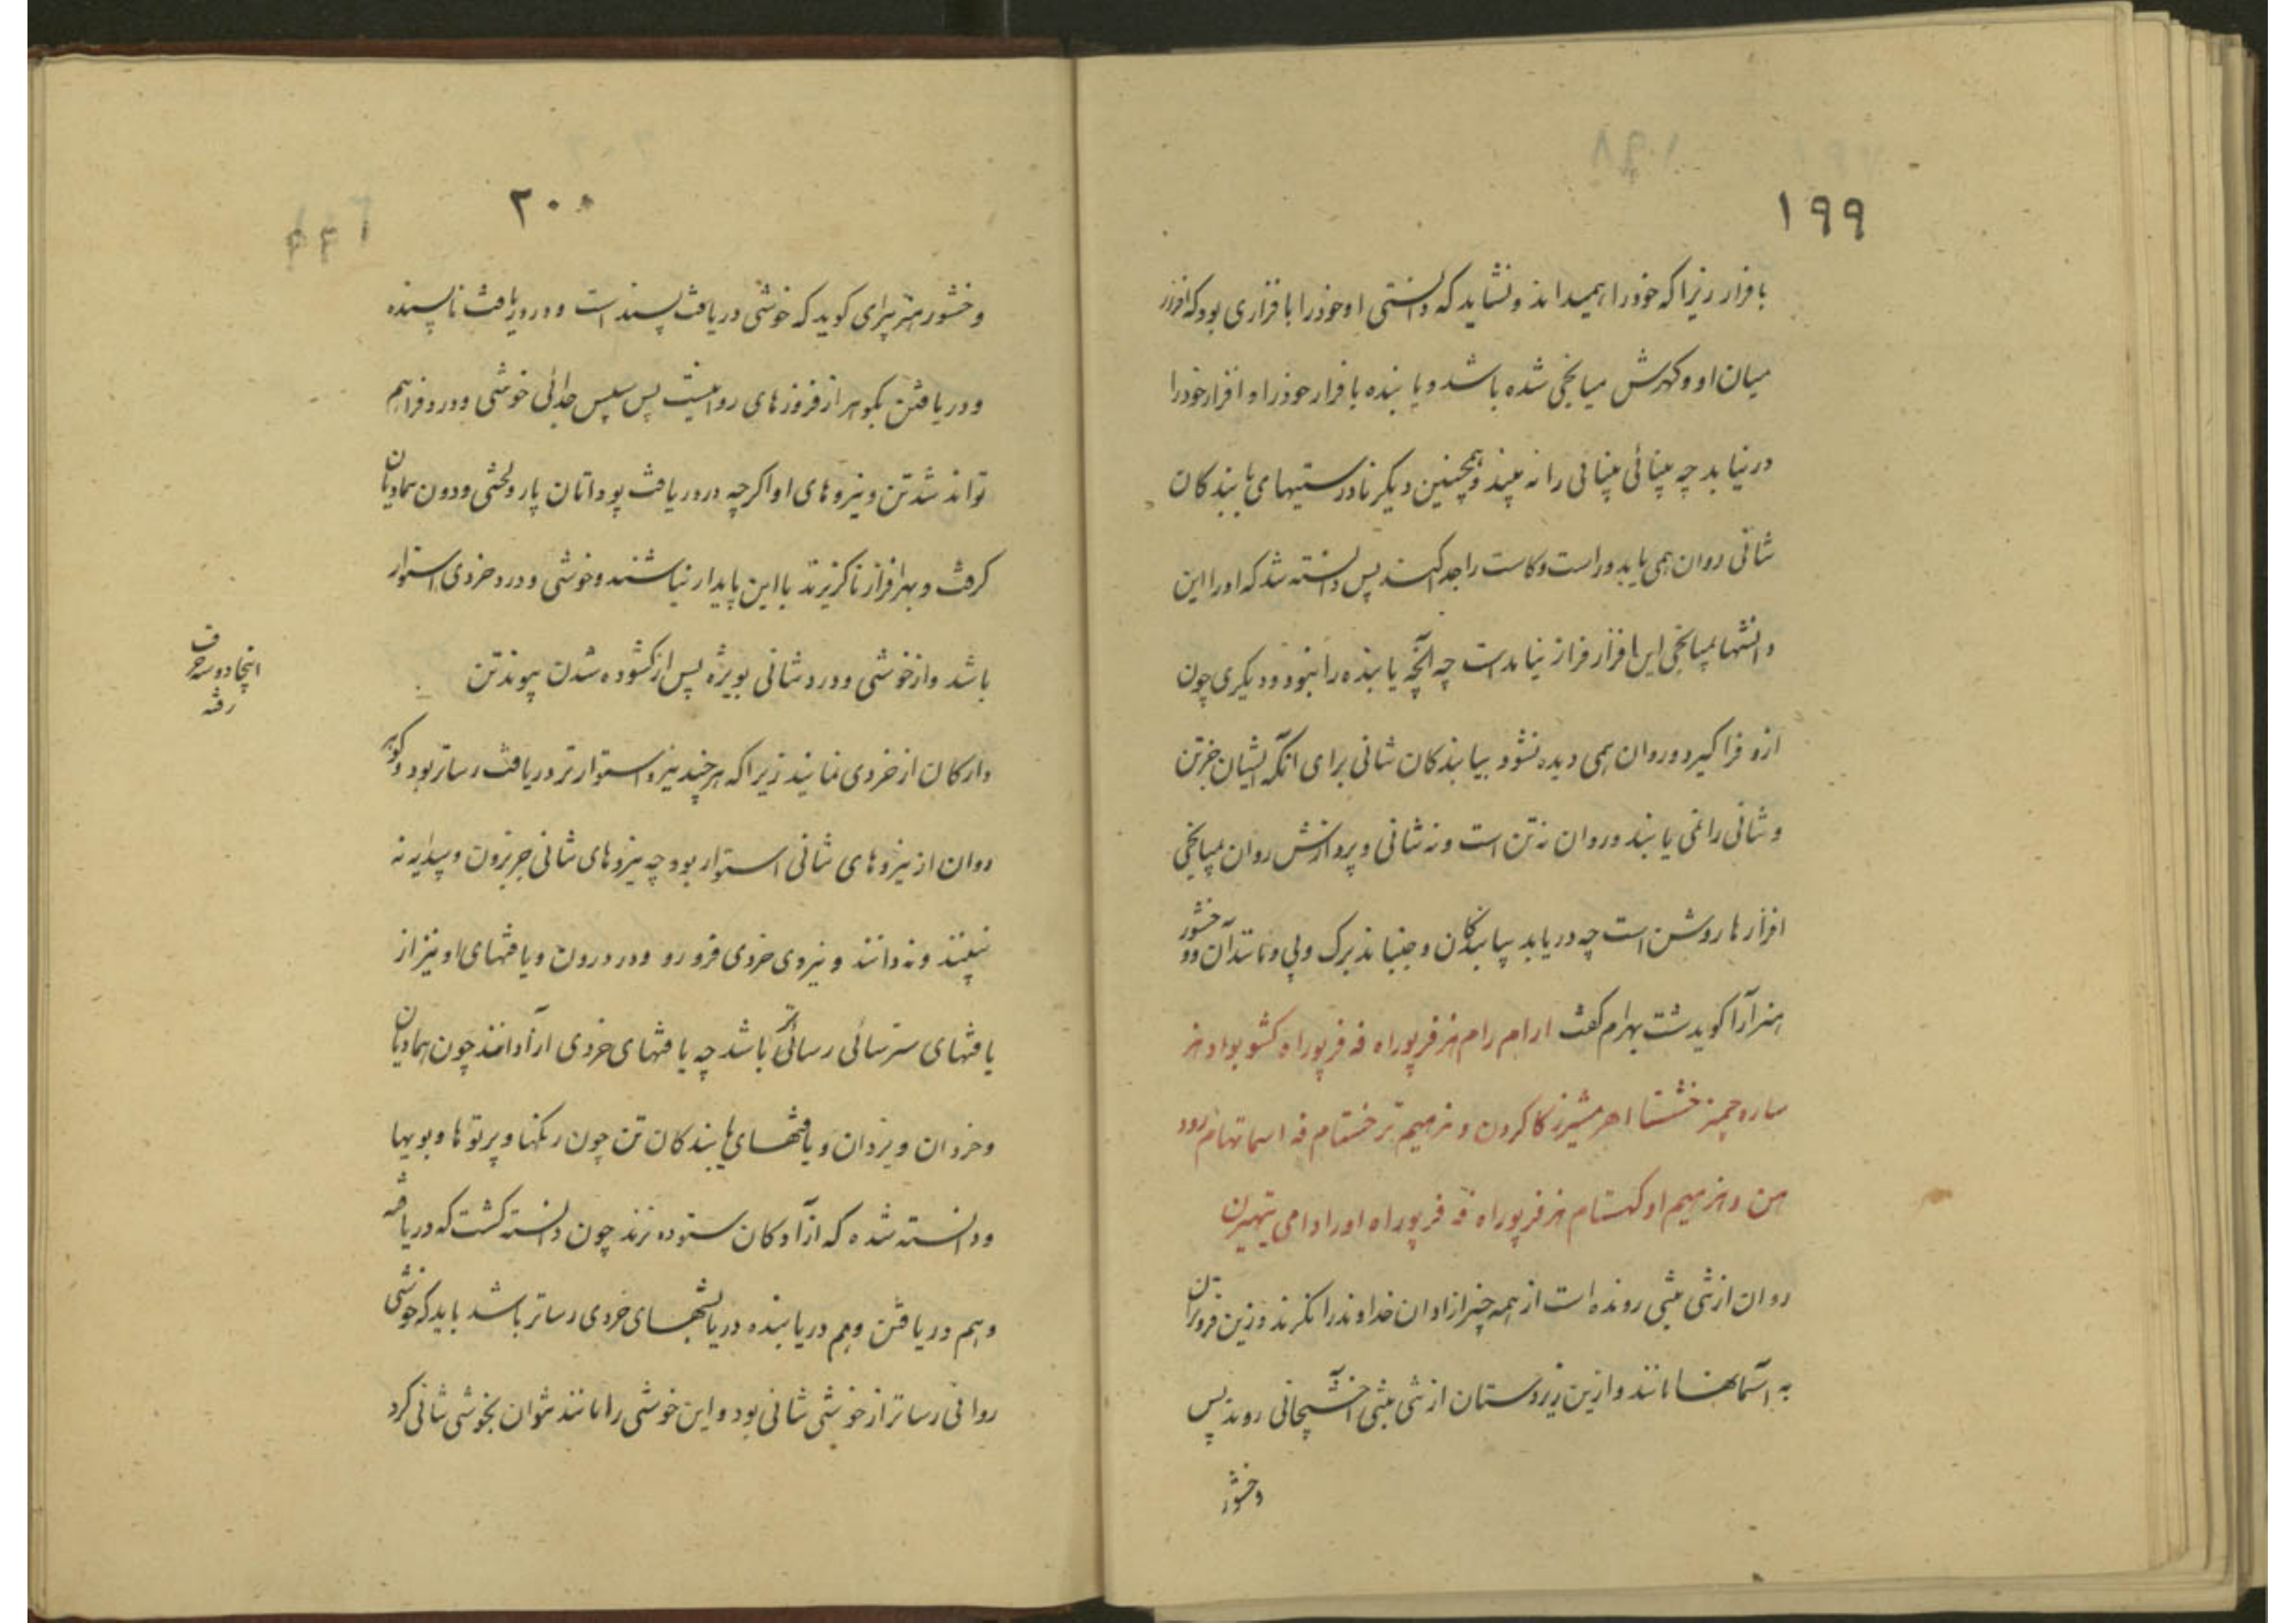 ۱۹۹
بافزار زیرا که خود را همیداند و نشاید که دانستی او خود را بافزاری بود که افزار
میان او و گهرش میانجی شده باشد و یابنده بافزار خود را و افزار خود را
در نیابد چه بینائی بینائی را نه بیند و همچنین دیگر نادرستیهای یابندگان
تنانی روان همی یابد و راست و کاست را جدا کند پس دانسته شد که او را این
دانشها بمیانجی این افزار فراز نیامدست چه آنچه یابنده را نبود و دیگری چون
ازو فراگیرد و روان همی دیده نشود بیابندگان تنانی برای آنکه ایشان جز تن
و تنانی را نمی یابند و روان نه تن است و نه تنانی و پردازش روان بمیانجی
افزارها روشن است چه دریابد بیابندگان و جنباند برگ و پی و مانند آن و وخشور
هنرآرا گوید شت بهرام گفت ارام رام هنر فرپوراه فه فرپوراه کشو بواد هنر
ساره چمیز خشتا اهر مشیرز کا کردن و نرمیم تر خستام فه اسمانهام رود
هن و هنرمیم او کهستام هنر فرپوراه فه فرپوراه اورادامی تپهیرن
روان از تنی بتنی رونده است از همه چیز ازادان خداوند را نگرند و زین فروتران
به آسمانها مانند و ازین زیردستان از تنی بتنی آخشیجانی روند پس
وخشور
۲۰۰
وخشور هنرپیرای گوید که خوشی دریافت پسندست و درد ریافت ناپسنده
و دریافتن بگوهر از فروزهای روانیست پس سپس جدائی خوشی و درد فراهم
تواند شد تن و نیروهای او اگرچه در دریافت بود اتان پار ولختی و دون همادیان
گرفت و بهر افراز ناگزیرند با این پایدار نباشند و خوشی و درد خردی استوار
باشد و از خوشی و درد تنانی بویژه پس از گشوده شدن پیوند تن
اینجا دو سه حرف
رفته
دارکان از خردی نمایند زیرا که هر چند نیرو استوارتر دریافت رساتر بود و گوهر
روان از نیروهای تنانی استوار بود چه نیروهای تنانی جز برون و پیدا را نه
نبینند و نه دانند و نیروی خردی فرو رود در درون و یافتهای او نیز از
یافتهای سترسائی رسائی تر باشد چه یافتهای خردی آزادانند چون همادیان
و خردان و یزدان و یافتهای یابندگان تن چون رنگها و پرتوها و بویها
و دانسته شده که از آزادگان ستوده ترند چون دانسته گشت که دریافته
و هم دریافتن و هم دریابنده در یابشهای خردی رساتر باشد باید که خوشی
روانی رساتر از خوشی تنانی بود و این خوشی را مانند نتوان بخوشی تنانی کرد